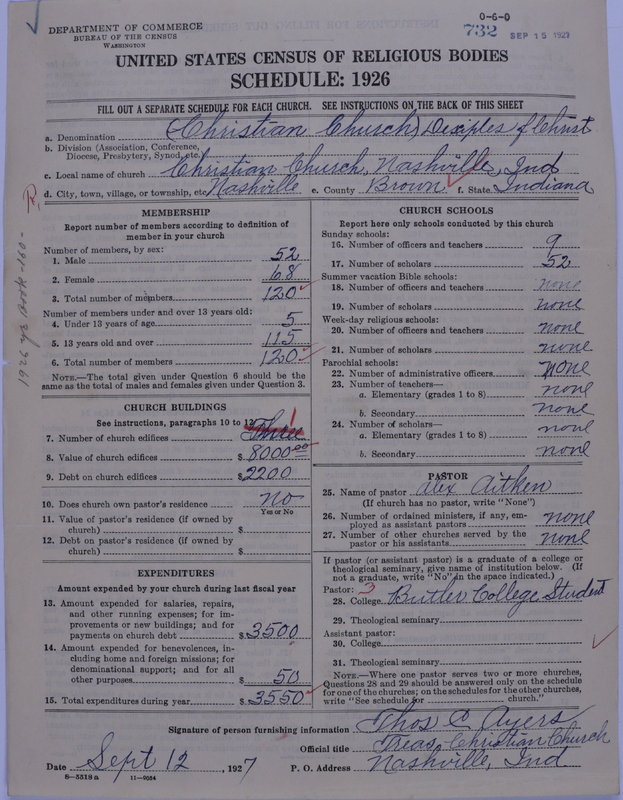 0-6-0
DEPARTMENT OF COMMERCE
BUREAU OF THE CENSUS
WASHINGTON
732 SEP 15 1927
UNITED STATES CENSUS OF RELIGIOUS BODIES
SCHEDULE: 1926
FILL OUT A SEPARATE SCHEDULE FOR EACH CHURCH. SEE INSTRUCTIONS ON THE BACK OF THIS SHEET
a. Denomination (Christian Church) Disciples of Christ
b. Division (Association, Conference,
Diocese, Presbytery, Synod, etc.)
c. Local name of church Christian Church, Nashville, Ind
d. City, town, village, or township, etc. Nashville e. County Brown f. State Indiana
MEMBERSHIP
Report number of members according to definition of
member in your church
Number of members, by sex:
1. Male 52
2. Female 68
3. Total number of members 120
Number of members under and over 13 years old:
4. Under 13 years of age 5
5. 13 years old and over 115
6. Total number of members 120
NOTE.—The total given under Question 6 should be the
same as the total of males and females given under Question 3.
CHURCH BUILDINGS
See instructions, paragraphs 10 to 12
7. Number of church edifices Three 1
8. Value of church edifices $ 8000.00
9. Debt on church edifices $ 2200
10. Does church own pastor's residence no
Yes or No
11. Value of pastor's residence (if owned by
church) $
12. Debt on pastor's residence (if owned by
church) $
EXPENDITURES
Amount expended by your church during last fiscal year
13. Amount expended for salaries, repairs,
and other running expenses; for im-
provements or new buildings; and for
payments on church debt $ 3500
14. Amount expended for benevolences, in-
cluding home and foreign missions; for
denominational support; and for all
other purposes $ 50
15. Total expenditures during year $ 3550
CHURCH SCHOOLS
Report here only schools conducted by this church
Sunday schools:
16. Number of officers and teachers 9
17. Number of scholars 52
Summer vacation Bible schools:
18. Number of officers and teachers none
19. Number of scholars none
Week-day religious schools:
20. Number of officers and teachers none
21. Number of scholars none
Parochial schools:
22. Number of administrative officers none
23. Number of teachers—
a. Elementary (grades 1 to 8) none
b. Secondary none
24. Number of scholars—
a. Elementary (grades 1 to 8) none
b. Secondary none
PASTOR
25. Name of pastor Alex Aitken
(If church has no pastor, write "None")
26. Number of ordained ministers, if any, em-
ployed as assistant pastors none
27. Number of other churches served by the
pastor or his assistants none
If pastor (or assistant pastor) is a graduate of a college or
theological seminary, give name of institution below. (If
not a graduate, write "No" in the space indicated.)
Pastor: 3
28. College Butler College Student
29. Theological seminary
Assistant pastor:
30. College
31. Theological seminary
NOTE.—Where one pastor serves two or more churches,
Questions 28 and 29 should be answered only on the schedule
for one of the churches; on the schedules for the other churches,
write "See schedule for church."
Signature of person furnishing information Thos C Ayers
Official title Treas. Christian Church
Date Sept 12, 1927 P. O. Address Nashville, Ind
8-5318a 11-9084